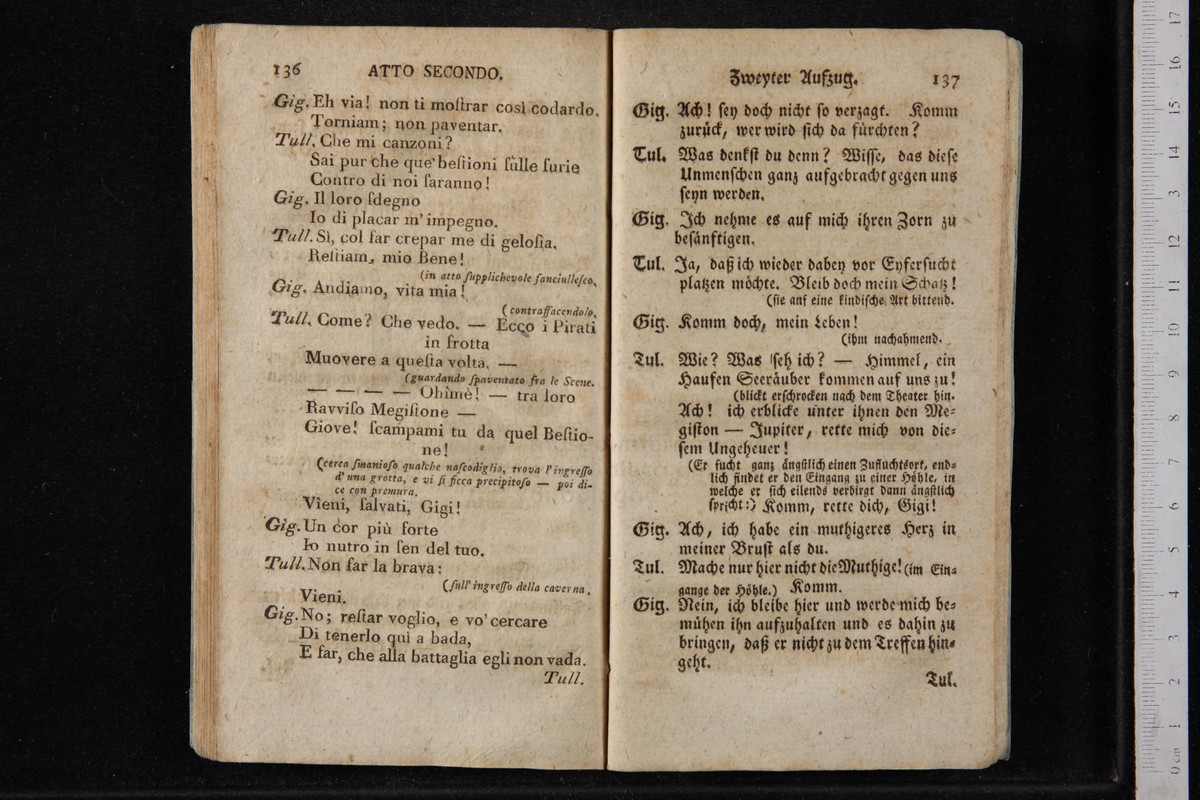 136 ATTO SECONDO.
Gig. Eh via! non ti moſtrar così codardo.
Torniam; non paventar.
Tull. Che mi canzoni?
Sai pur che que' beſtioni ſulle furie
Contro di noi ſaranno!
Gig. Il loro ſdegno
Io di placar m' impegno.
Tull. Sì, col far crepar me di geloſia.
Reſtiam, mio Bene!
(in atto ſupplichevole fanciulleſco.
Gig. Andiamo, vita mia!
(contraffacendolo.
Tull. Come? Che vedo. — Ecco i Pirati
in frotta
Muovere a queſta volta. —
(guardando ſpaventato fra le Scene.
— — — — Ohimè! — tra loro
Ravviſo Megiſtione —
Giove! ſcampami tu da quel Beſtio-
ne!
(cerca ſmanioſo qualche naſcodiglio, trova l' ingreſſo
d' una grotta, e vi ſi ficca precipitoſo — poi di-
ce con premura.
Vieni, ſalvati, Gigi!
Gig. Un cor più forte
Io nutro in ſen del tuo.
Tull. Non far la brava:
(ſull' ingreſſo della caverna.
Vieni.
Gig. No; reſtar voglio, e vo' cercare
Di tenerlo quì a bada,
E far, che alla battaglia egli non vada.
Tull.
Zweyter Aufzug. 137
Gig. Ach! ſey doch nicht ſo verzagt. Komm
zurück, wer wird ſich da fürchten?
Tul. Was denkſt du denn? Wiſſe, das dieſe
Unmenſchen ganz aufgebracht gegen uns
ſeyn werden.
Gig. Ich nehme es auf mich ihren Zorn zu
beſänftigen.
Tul. Ja, daß ich wieder dabey vor Eyferſucht
platzen möchte. Bleib doch mein Schatz!
(ſie auf eine kindiſche Art bittend.
Gig. Komm doch, mein Leben!
(ihm nachahmend.
Tul. Wie? Was ſeh ich? — Himmel, ein
Haufen Seeräuber kommen auf uns zu!
(blickt erſchrocken nach dem Theater hin.
Ach! ich erblicke unter ihnen den Me-
giſton — Jupiter, rette mich von die-
ſem Ungeheuer!
(Er ſucht ganz ängſtlich einen Zufluchtsort, end-
lich findet er den Eingang zu einer Höhle, in
welche er ſich eilends verbirgt dann ängſtlich
ſpricht:) Komm, rette dich, Gigi!
Gig. Ach, ich habe ein muthigeres Herz in
meiner Bruſt als du.
Tul. Mache nur hier nicht die Muthige! (im Ein-
gange der Höhle.) Komm.
Gig. Nein, ich bleibe hier und werde mich be-
mühen ihn aufzuhalten und es dahin zu
bringen, daß er nicht zu dem Treffen hin-
geht.
Tul.
0 cm 1 2 3 4 5 6 7 8 9 10 11 12 13 14 15 16 17